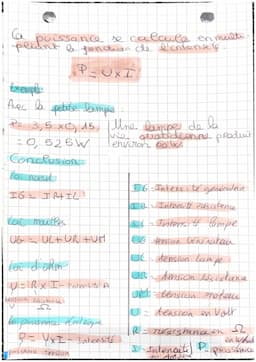 La puissance se calcule en multi-
pliant la fonction de l'intensité.
P = U x I
Exemple
Avec la petite lampe
P = 3,5 x 0,15
= 0,525 W
Une lampe de la
vie quotidienne produit
environ
Conclusion
Loi noeud
IG = IR + IL
Loi mailles
UG = UL + UR + UM
Loi d'ohm
U = R x I - intensité A
P = U x I - Intensité
IG - Intensité générateur
IR - Intensité résistance
IL - Intensité lampe
UG - tension Générateur
UL - tension lampe
UR - tension résistance
UM - tension moteur
U = tension en Volt
R = résistance en Ω
I - Intensité
P = puissance